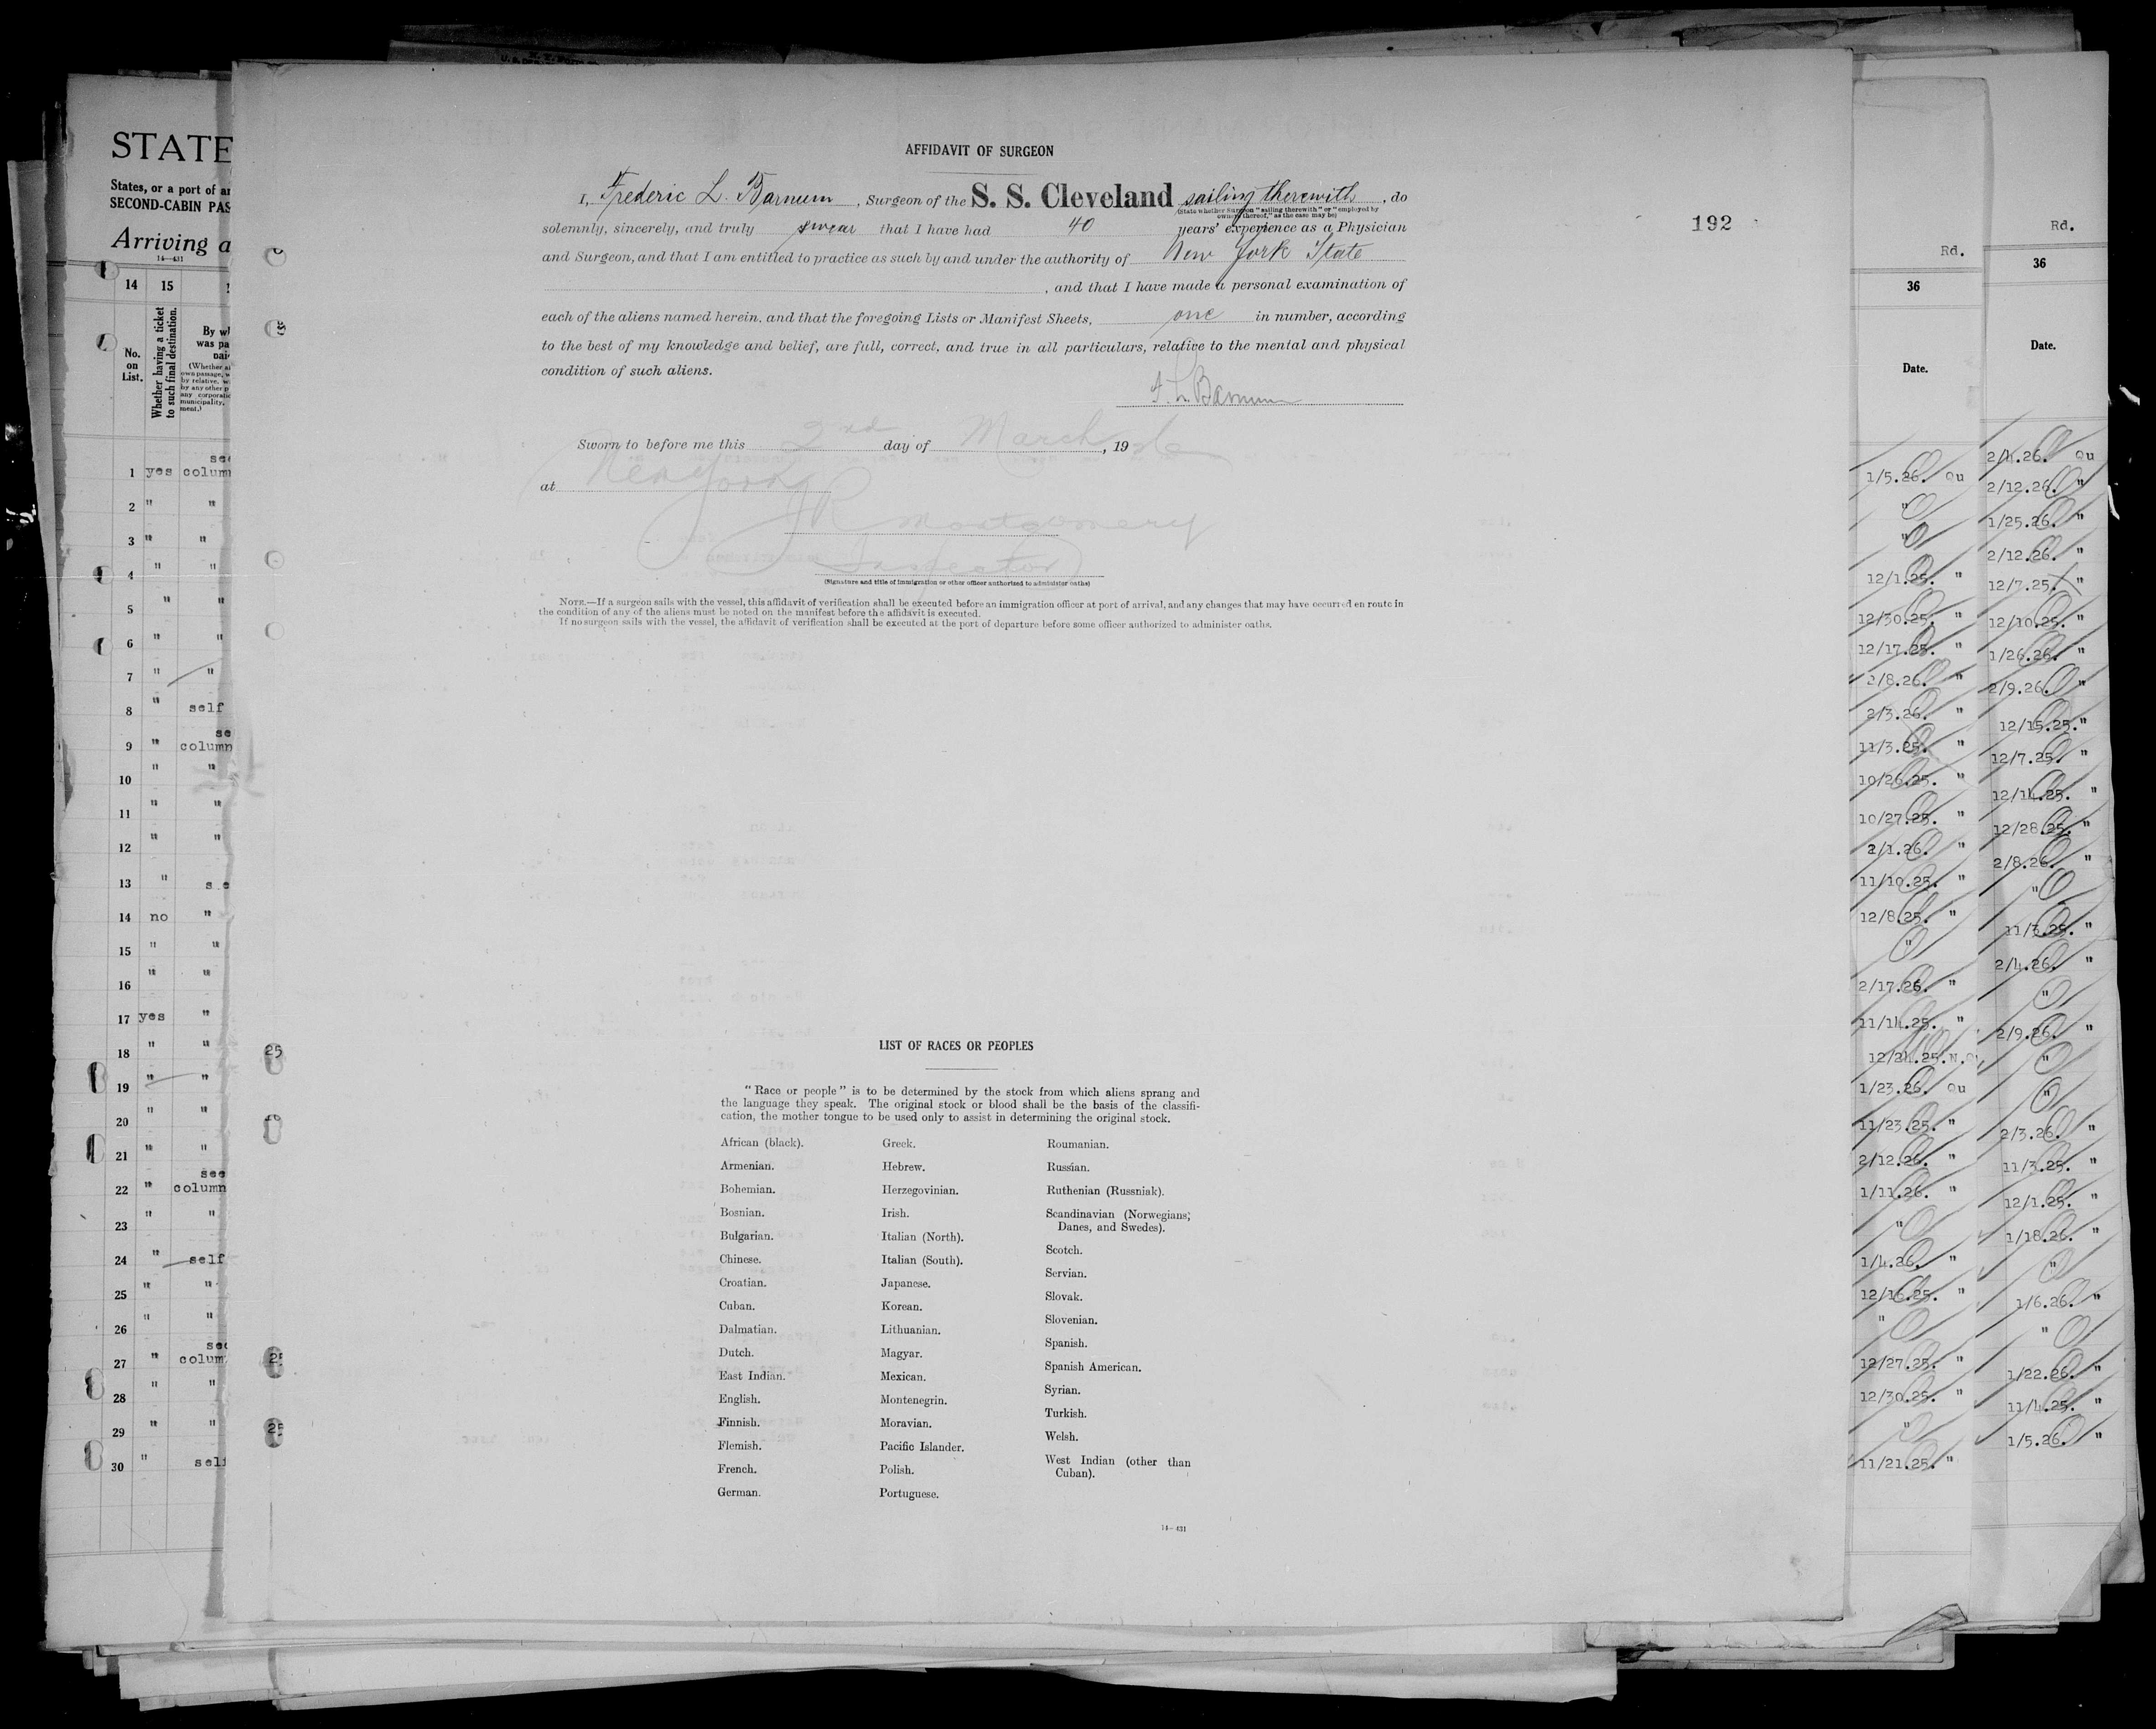 AFFIDAVIT OF SURGEON
I, Frederic L. Barnum, Surgeon of the S. S. Cleveland sailing therewith, do
(State whether Surgeon "sailing therewith" or "employed by
owners thereof," as the case may be)
solemnly, sincerely, and truly swear that I have had 40 years' experience as a Physician
and Surgeon, and that I am entitled to practice as such by and under the authority of New York State
, and that I have made a personal examination of
each of the aliens named herein, and that the foregoing Lists or Manifest Sheets, one in number, according
to the best of my knowledge and belief, are full, correct, and true in all particulars, relative to the mental and physical
condition of such aliens.
F. L. Barnum
Sworn to before me this 2nd day of March, 1926
at New York
JR Montgomery
Inspector
(Signature and title of immigration or other officer authorized to administer oaths)
NOTE.—If a surgeon sails with the vessel, this affidavit of verification shall be executed before an immigration officer at port of arrival, and any changes that may have occurred en route in
the condition of any of the aliens must be noted on the manifest before the affidavit is executed.
If no surgeon sails with the vessel, the affidavit of verification shall be executed at the port of departure before some officer authorized to administer oaths.
192
LIST OF RACES OR PEOPLES
"Race or people" is to be determined by the stock from which aliens sprang and
the language they speak. The original stock or blood shall be the basis of the classifi-
cation, the mother tongue to be used only to assist in determining the original stock.
African (black).
Armenian.
Bohemian.
Bosnian.
Bulgarian.
Chinese.
Croatian.
Cuban.
Dalmatian.
Dutch.
East Indian.
English.
Finnish.
Flemish.
French.
German.
Greek.
Hebrew.
Herzegovinian.
Irish.
Italian (North).
Italian (South).
Japanese.
Korean.
Lithuanian.
Magyar.
Mexican.
Montenegrin.
Moravian.
Pacific Islander.
Polish.
Portuguese.
Roumanian.
Russian.
Ruthenian (Russniak).
Scandinavian (Norwegians,
Danes, and Swedes).
Scotch.
Servian.
Slovak.
Slovenian.
Spanish.
Spanish American.
Syrian.
Turkish.
Welsh.
West Indian (other than
Cuban).
14—431
STATE
States, or a port of
SECOND-CABIN PAS
Arriving a
14—431
14 15
No.
on
List.
Whether having a ticket
to such final destination.
1 yes column
2 " "
3 " "
4 " "
5 " "
6 " "
7 " "
8 " self
9 " column
10 " "
11 " "
12 " "
13 "
14 no "
15 " "
16 " "
17 yes "
18 " "
19 " "
20 " "
21 " "
see
22 " column
23 " "
24 " self
25 " "
26 " "
27 " colum
28 " "
29 " "
30 " self
Rd.
36
Date.
1/5.26. Qu
"
"
12/1.25. "
12/30.25. "
12/17.25. "
2/8.26. "
2/3.26. "
11/3.25. "
10/26.25. "
10/27.25. "
2/1.26. "
11/10.25. "
12/8.25. "
"
2/17.26. "
11/14.25. "
12/24.25.
1/23.26. Qu
11/23.25. "
2/12.26. "
1/11.26. "
"
1/4.26. "
12/16.25. "
"
12/27.25. "
12/30.25. "
"
11/21.25. "
Rd.
36
Date.
2/4.26. Qu
2/12.26. "
1/25.26. "
2/12.26. "
12/7.25. "
12/10.25. "
1/26.26. "
2/9.26. "
12/15.25. "
12/7.25. "
12/14.25. "
12/28.25. "
2/8.26. "
"
11/3.25. "
2/4.26. "
"
2/9.26. "
"
"
2/3.26. "
11/3.25. "
12/1.25. "
1/18.26. "
"
1/6.26. "
"
1/22.26. "
11/4.25. "
1/5.26. "